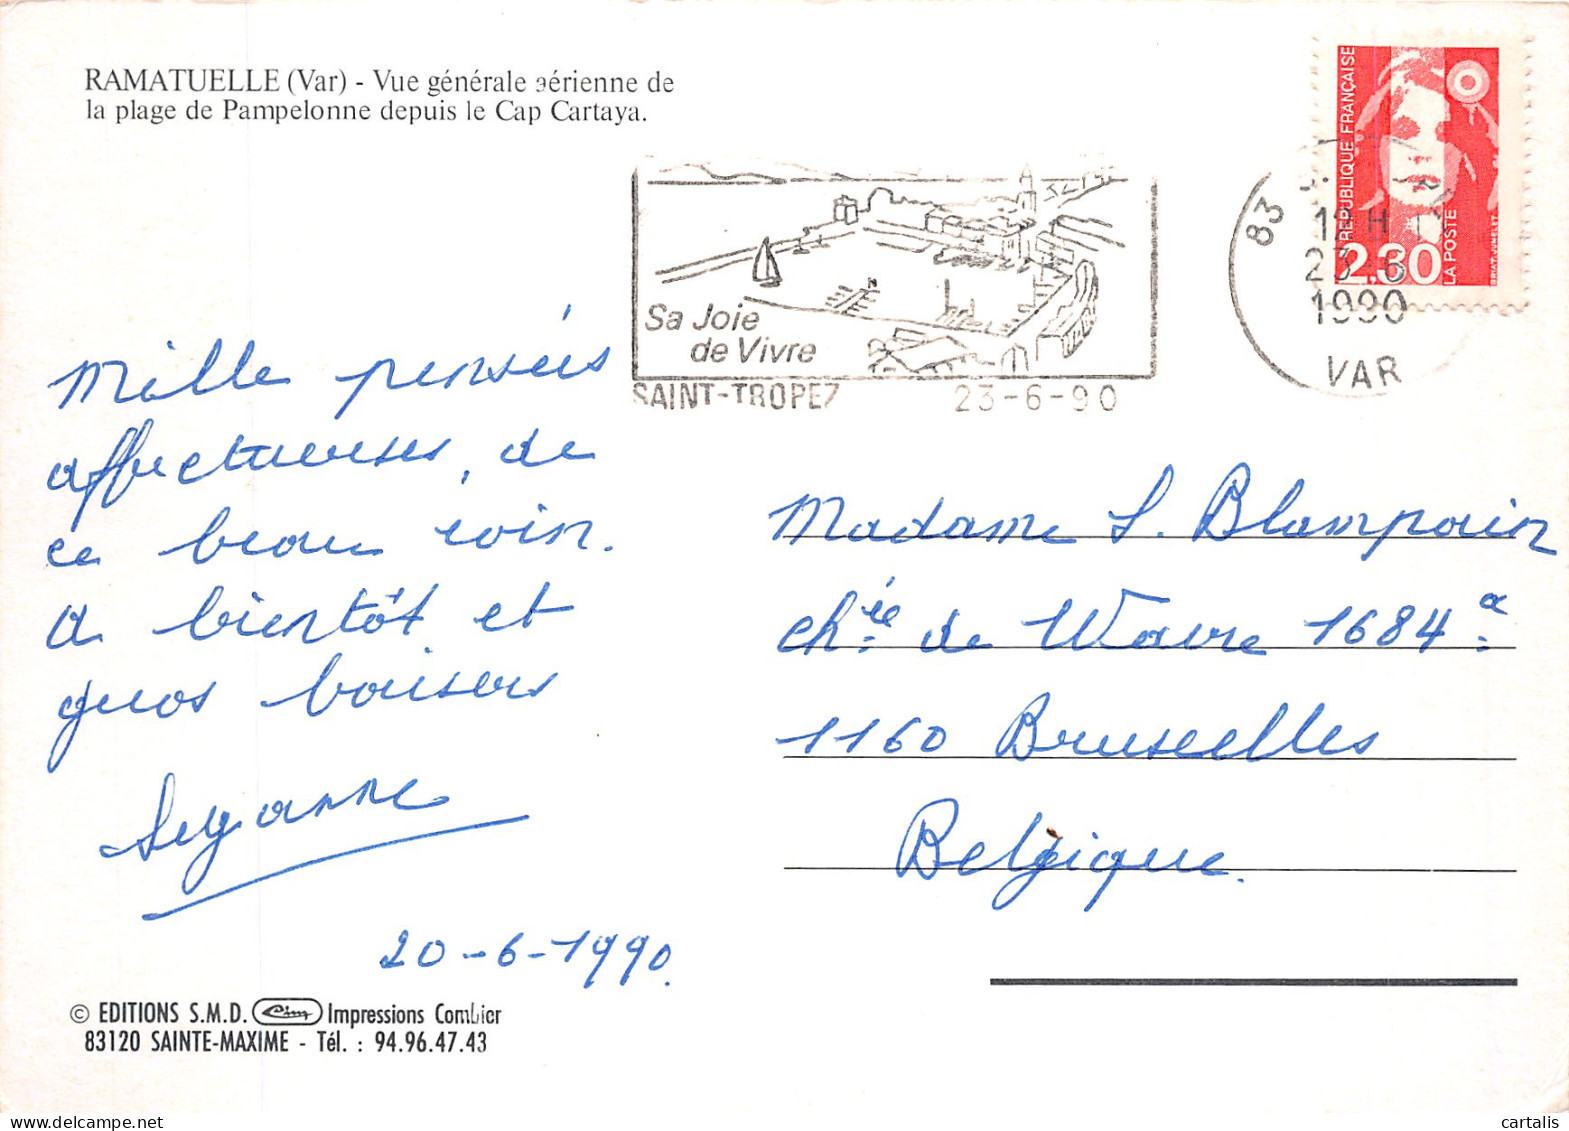 RAMATUELLE (Var) - Vue générale aérienne de
la plage de Pampelonne depuis le Cap Cartaya.
Sa Joie
de Vivre
SAINT-TROPEZ 23-6-90
83
H
23 6
1990
VAR
REPUBLIQUE FRANÇAISE
2,30
LA POSTE
BRIAT. JUMELET
Mille pensées
affectueuses, de
ce beau coin.
a bientôt et
gros baisers
Suzanne
20-6-1990.
Madame S. Blampain
chée de Wavre 1684 a
1160 Bruxelles
Belgique.
© EDITIONS S.M.D. Cim Impressions Combier
83120 SAINTE-MAXIME - Tél. : 94.96.47.43
cartalis